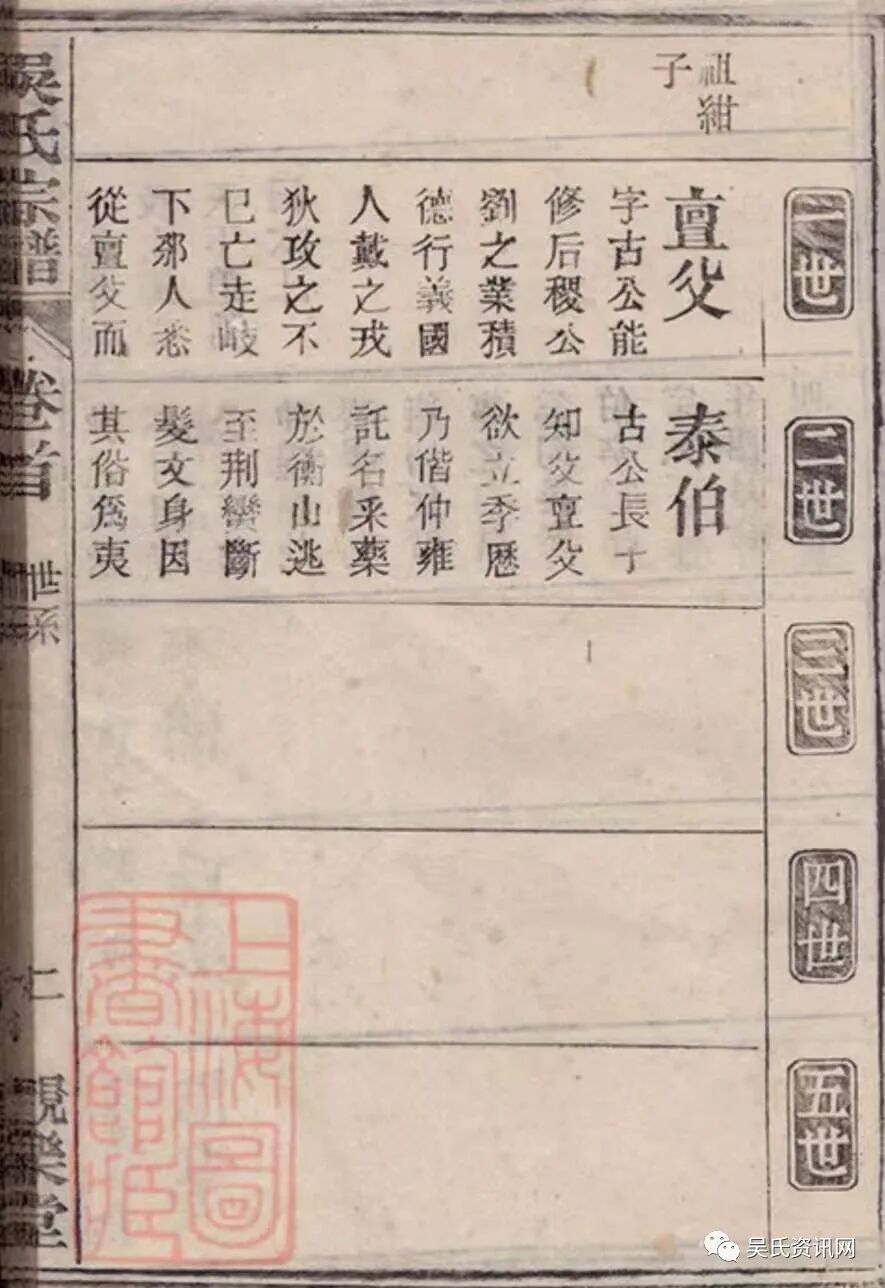 祖紺
子
一世
亶父
字古公能
修后稷公
劉之業積
德行義國
人戴之戎
狄攻之不
已亡走岐
下邠人悉
從亶父而
二世
泰伯
古公長子
知父亶父
欲立季歷
乃偕仲雍
託名采藥
於衡山逃
至荆蠻斷
髮文身因
其俗爲夷
三世
四世
五世
吳氏宗譜
卷首
世系
二
上海圖
書館藏
吴氏资讯网